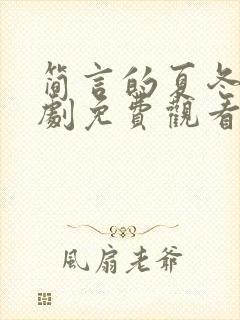 簡言的夏冬
劇免費觀看
風扇老爺